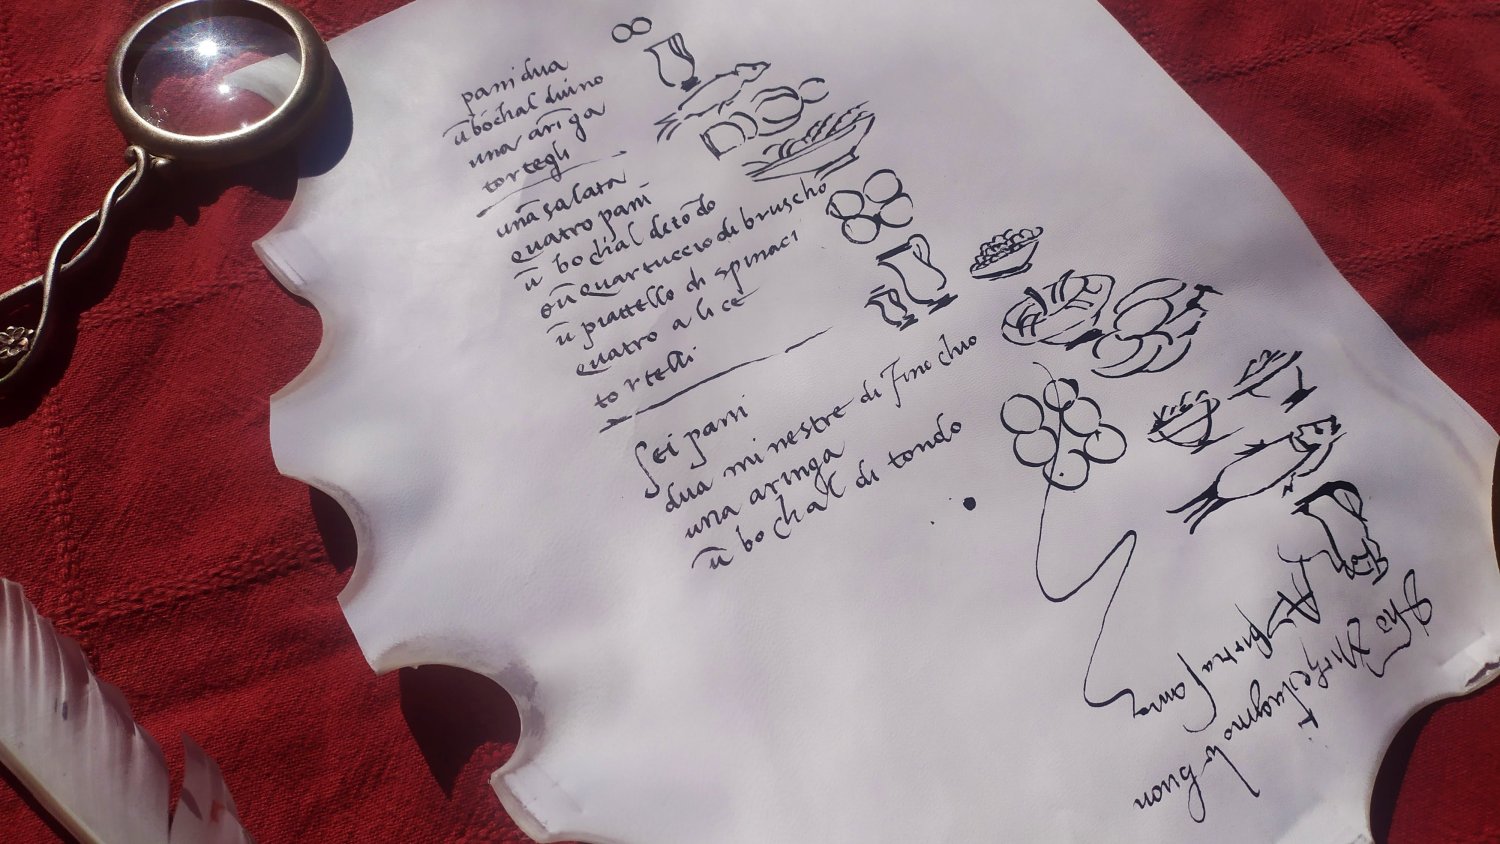 pani dua
ū bochal duino
una ariga
tortegli
unāsalata
quatro pani
ū bochal detōdo
oūquartuccio di bruscho
ū piattello di spinaci
quatro alice
tortelli
sei pani
dua minestre di finochio
una aringa
ū bochal di tondo